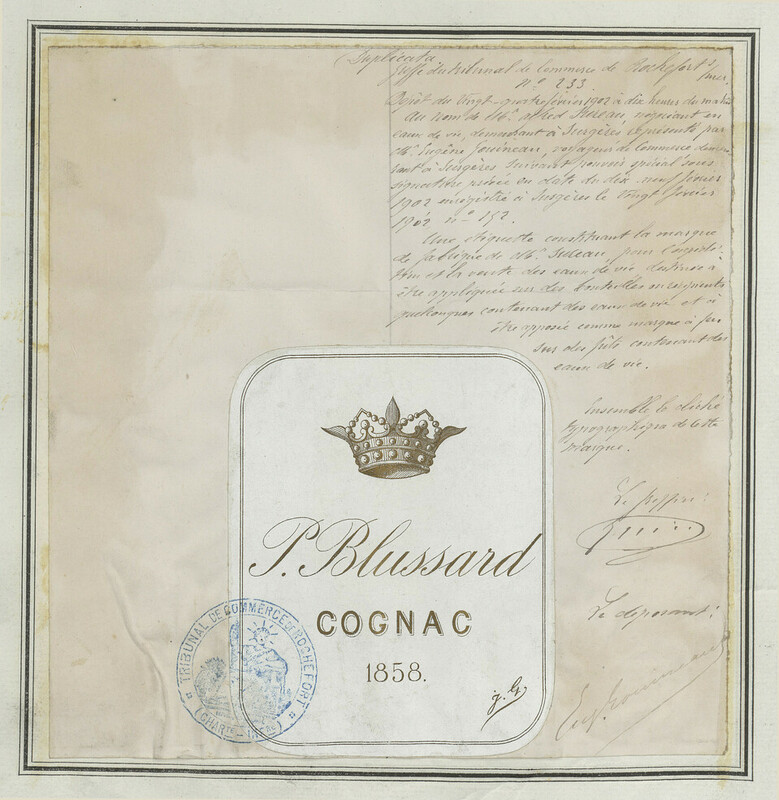 Duplicata
Greffe du tribunal de Commerce de Rochefort s/ mer
N° 233
Dépôt du vingt-quatre février 1902 à dix heures du matin
au nom de M. Alfred Sureau, négociant en
eaux de vie, demeurant à Surgères représenté par
M. Eugène Jouineau, voyageur de Commerce demeu-
rant à Surgères suivant pouvoir spécial sous
signature privée en date du dix-neuf février
1902 enregistré à Surgères le vingt février
1902 n° 152.
Une étiquette constituant la marque
de fabrique de M. Sureau, pour
et la vente des eaux de vie destinée à
être appliquée sur des bouteilles ou récipients
quelconques contenant des eaux de vie et à
être apposée comme marque à feu
sur des fûts contenant des
eaux de vie.
Ensemble le cliché
typographique de cette
marque.
Le greffier:
Le déposant:
Eug. Jouineau
P. Blussard
COGNAC
1858.
TRIBUNAL DE COMMERCE DE ROCHEFORT
(CHARTE-INFRE)